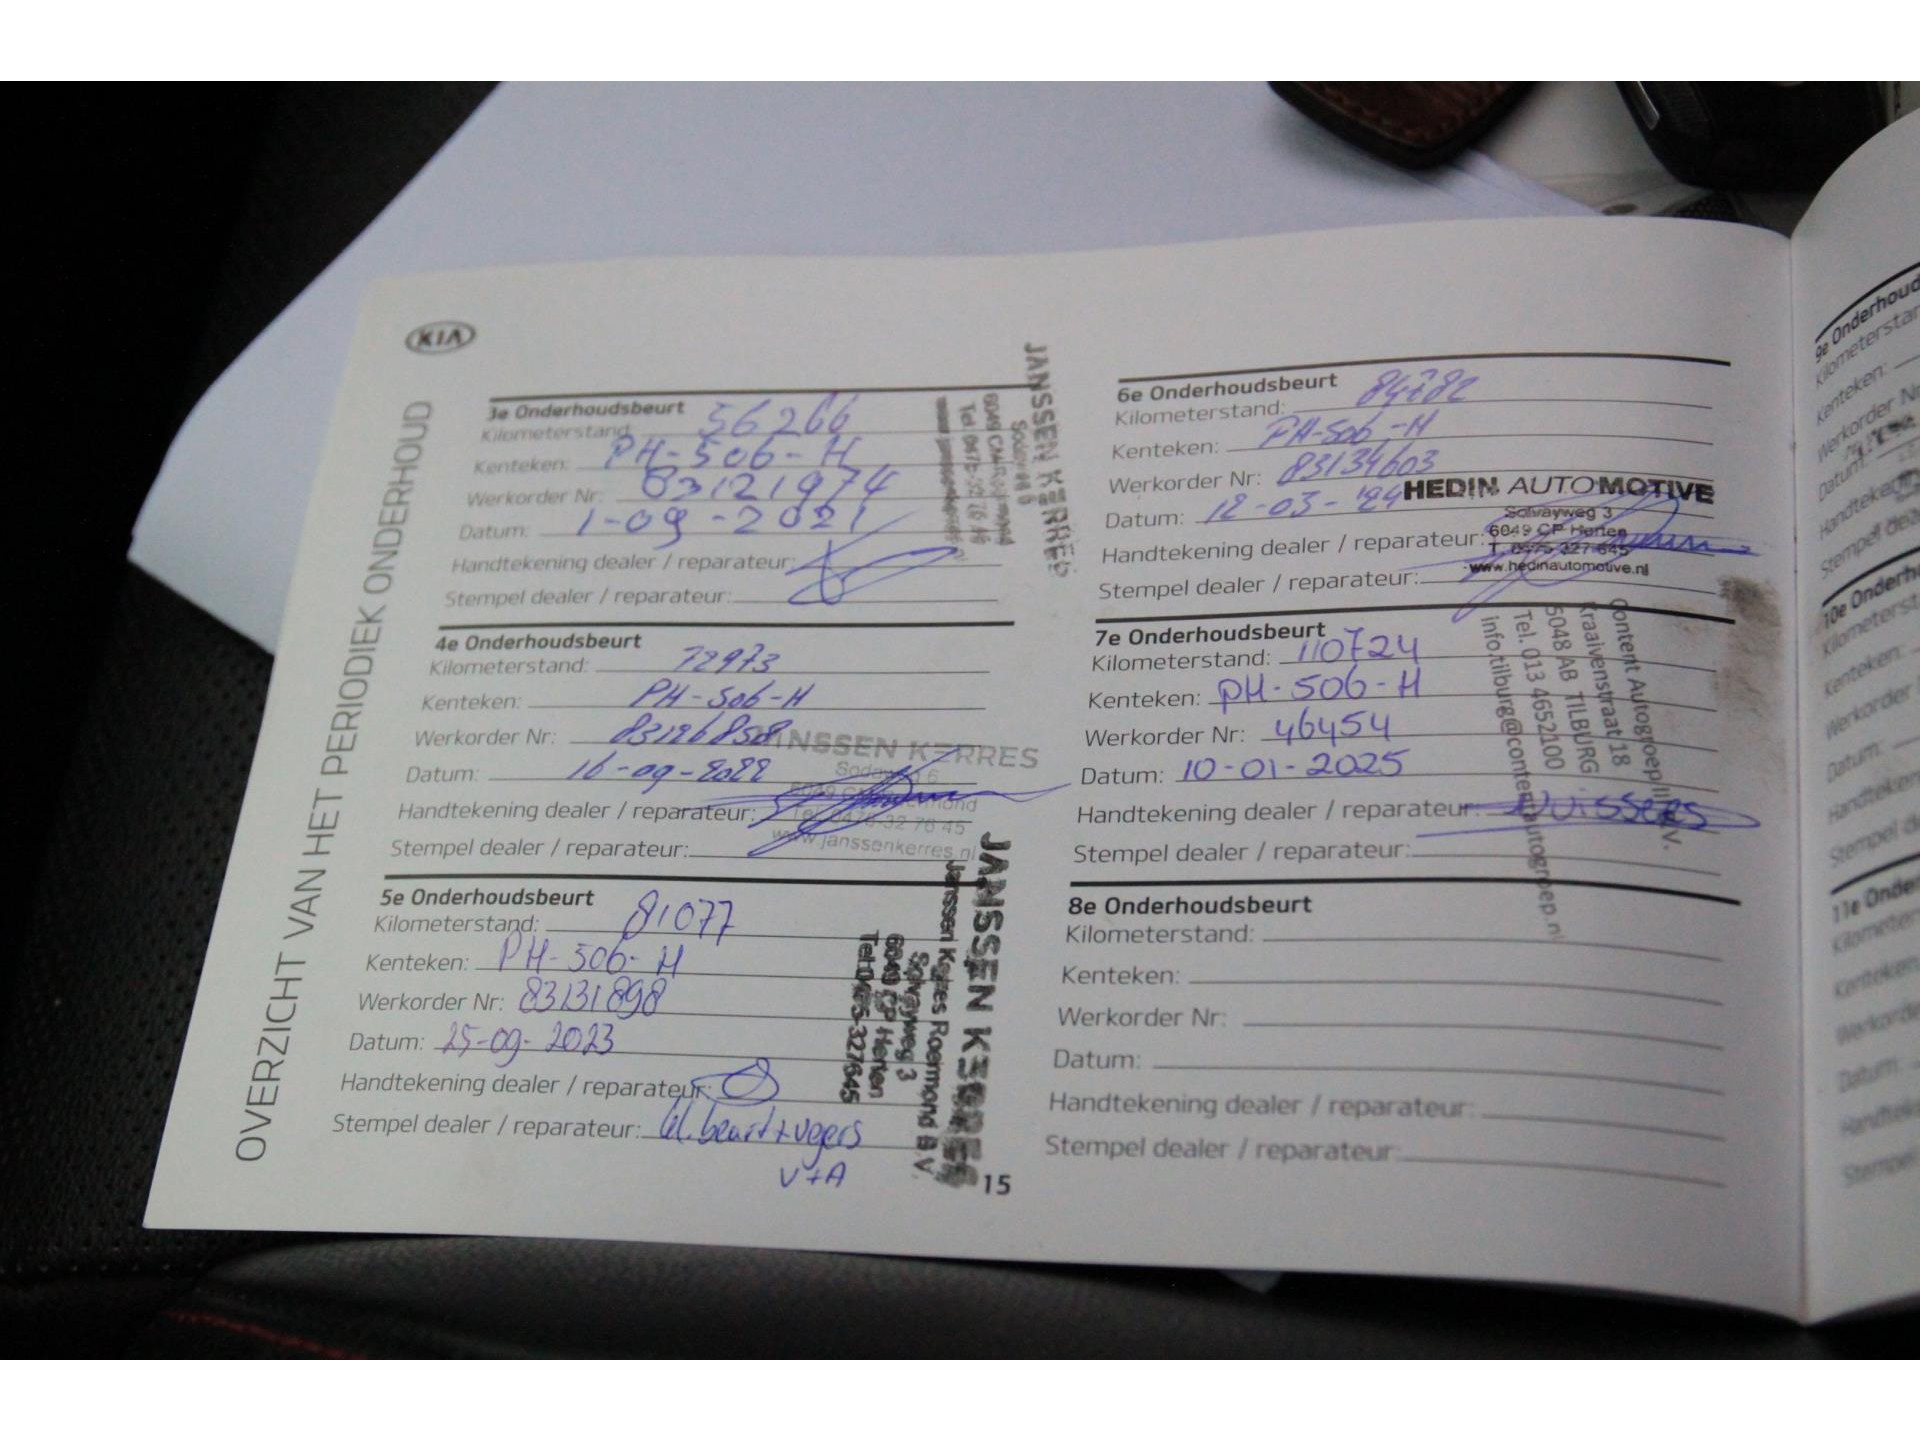 KIA
OVERZICHT VAN HET PERIODIEK ONDERHOUD
3e Onderhoudsbeurt
Kilometerstand: 56266
Kenteken: PH-506-H
Werkorder Nr: 83121974
Datum: 1-09-2021
Handtekening dealer / reparateur:
Stempel dealer / reparateur:
JANSSEN KERRES
4e Onderhoudsbeurt
Kilometerstand: 72973
Kenteken: PH-506-H
Werkorder Nr: 83126858
Datum: 16-09-2022
Handtekening dealer / reparateur:
Stempel dealer / reparateur:
JANSSEN KERRES
Tel. 0475-32 76 45
www.janssenkerres.nl
5e Onderhoudsbeurt
Kilometerstand: 81077
Kenteken: PH-506-H
Werkorder Nr: 83131898
Datum: 25-09-2023
Handtekening dealer / reparateur:
Stempel dealer / reparateur: kl.beurt+vgers
V+A
JANSSEN KERRES
Janssen Kerres Roermond B.V.
Solvayweg 3
6049 CP Herten
Tel:0475-327645
15
6e Onderhoudsbeurt
Kilometerstand:
Kenteken: PH-506-H
Werkorder Nr: 83134603
Datum: 12-03-'24
Handtekening dealer / reparateur:
Stempel dealer / reparateur:
HEDIN AUTOMOTIVE
Solvayweg 3
6049 CP Herten
T. 0475-327 645
www.hedinautomotive.nl
7e Onderhoudsbeurt
Kilometerstand: 110724
Kenteken: PH-506-H
Werkorder Nr: 46454
Datum: 10-01-2025
Handtekening dealer / reparateur: Nuissers
Stempel dealer / reparateur:
Content Autogroep
Kraaivenstraat 18
5048 AB TILBURG
Tel. 013 4652100
info.tilburg@contentautogroep.nl
8e Onderhoudsbeurt
Kilometerstand:
Kenteken:
Werkorder Nr:
Datum:
Handtekening dealer / reparateur:
Stempel dealer / reparateur:
9e Onderhoud
Kilometerstan
Kenteken:
Werkorder Nr
Datum:
Handtekening
Stempel dea
10e Onderho
Kilometersta
Kenteken:
Werkorder
Datum:
Handteken
Stempel d
11e Onder
Kilometer
Kenteken
Werkorde
Datum:
Handteke
Stempel